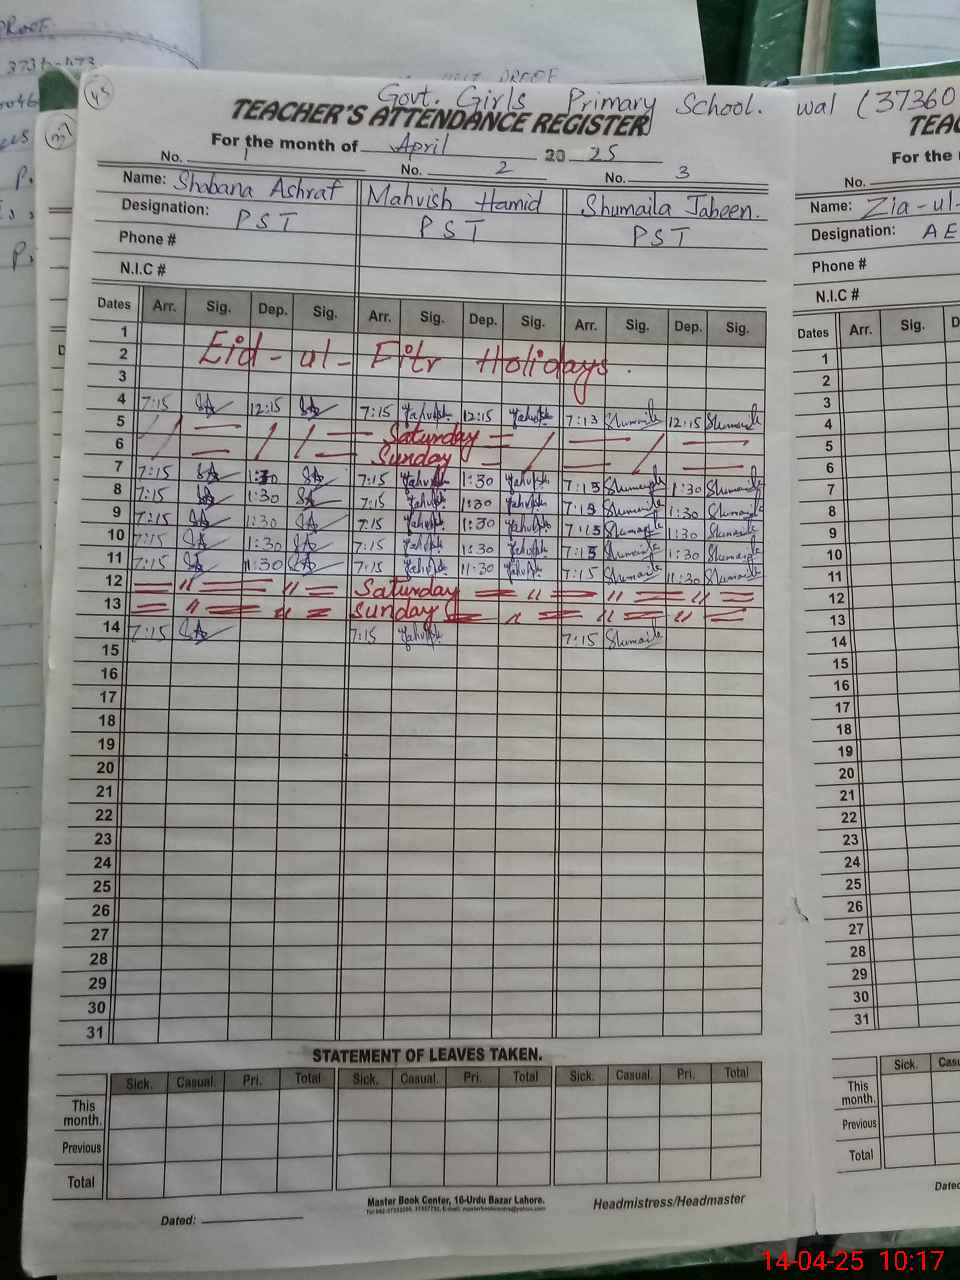 PROOF
Govt. Girls Primary School. wal (37360
TEACHER'S ATTENDANCE REGISTER
For the month of April 20 25
No. 1 No. 2 No. 3
Name: Shabana Ashraf Mahvish Hamid Shumaila Jabeen.
Designation: PST PST PST
Phone #
N.I.C #
Dates Arr. Sig. Dep. Sig. Arr. Sig. Dep. Sig. Arr. Sig. Dep. Sig.
1
2 Eid-ul-Fitr Holidays.
3
4 7:15 12:15 7:15 12:15 7:13 Shumaila 12:15 Shumaila
5 Saturday
6 Sunday
7 7:15 1:30 7:15 1:30 7:15 Shumaila 1:30 Shumaila
8 7:15 1:30 7:15 1:30 7:15 Shumaila 1:30 Shumaila
9 7:15 1:30 7:15 1:30 7:15 Shumaila 1:30 Shumaila
10 7:15 1:30 7:15 1:30 7:15 Shumaila 1:30 Shumaila
11 7:15 11:30 7:15 11:30 7:15 Shumaila 11:30 Shumaila
12 " " Saturday " " " "
13 " " Sunday " " " "
14 7:15 7:15 7:15 Shumaila
15
16
17
18
19
20
21
22
23
24
25
26
27
28
29
30
31
STATEMENT OF LEAVES TAKEN.
Sick. Casual. Pri. Total Sick. Casual. Pri. Total Sick. Casual. Pri. Total
This month.
Previous
Total
Master Book Center, 16-Urdu Bazar Lahore.
Headmistress/Headmaster
Dated:
TEAC
For the
No.
Name: Zia-ul-
Designation: AE
Phone #
N.I.C #
Dates Arr. Sig. D
1
2
3
4
5
6
7
8
9
10
11
12
13
14
15
16
17
18
19
20
21
22
23
24
25
26
27
28
29
30
31
Sick. Casu
This month.
Previous
Total
Dated
14-04-25 10:17